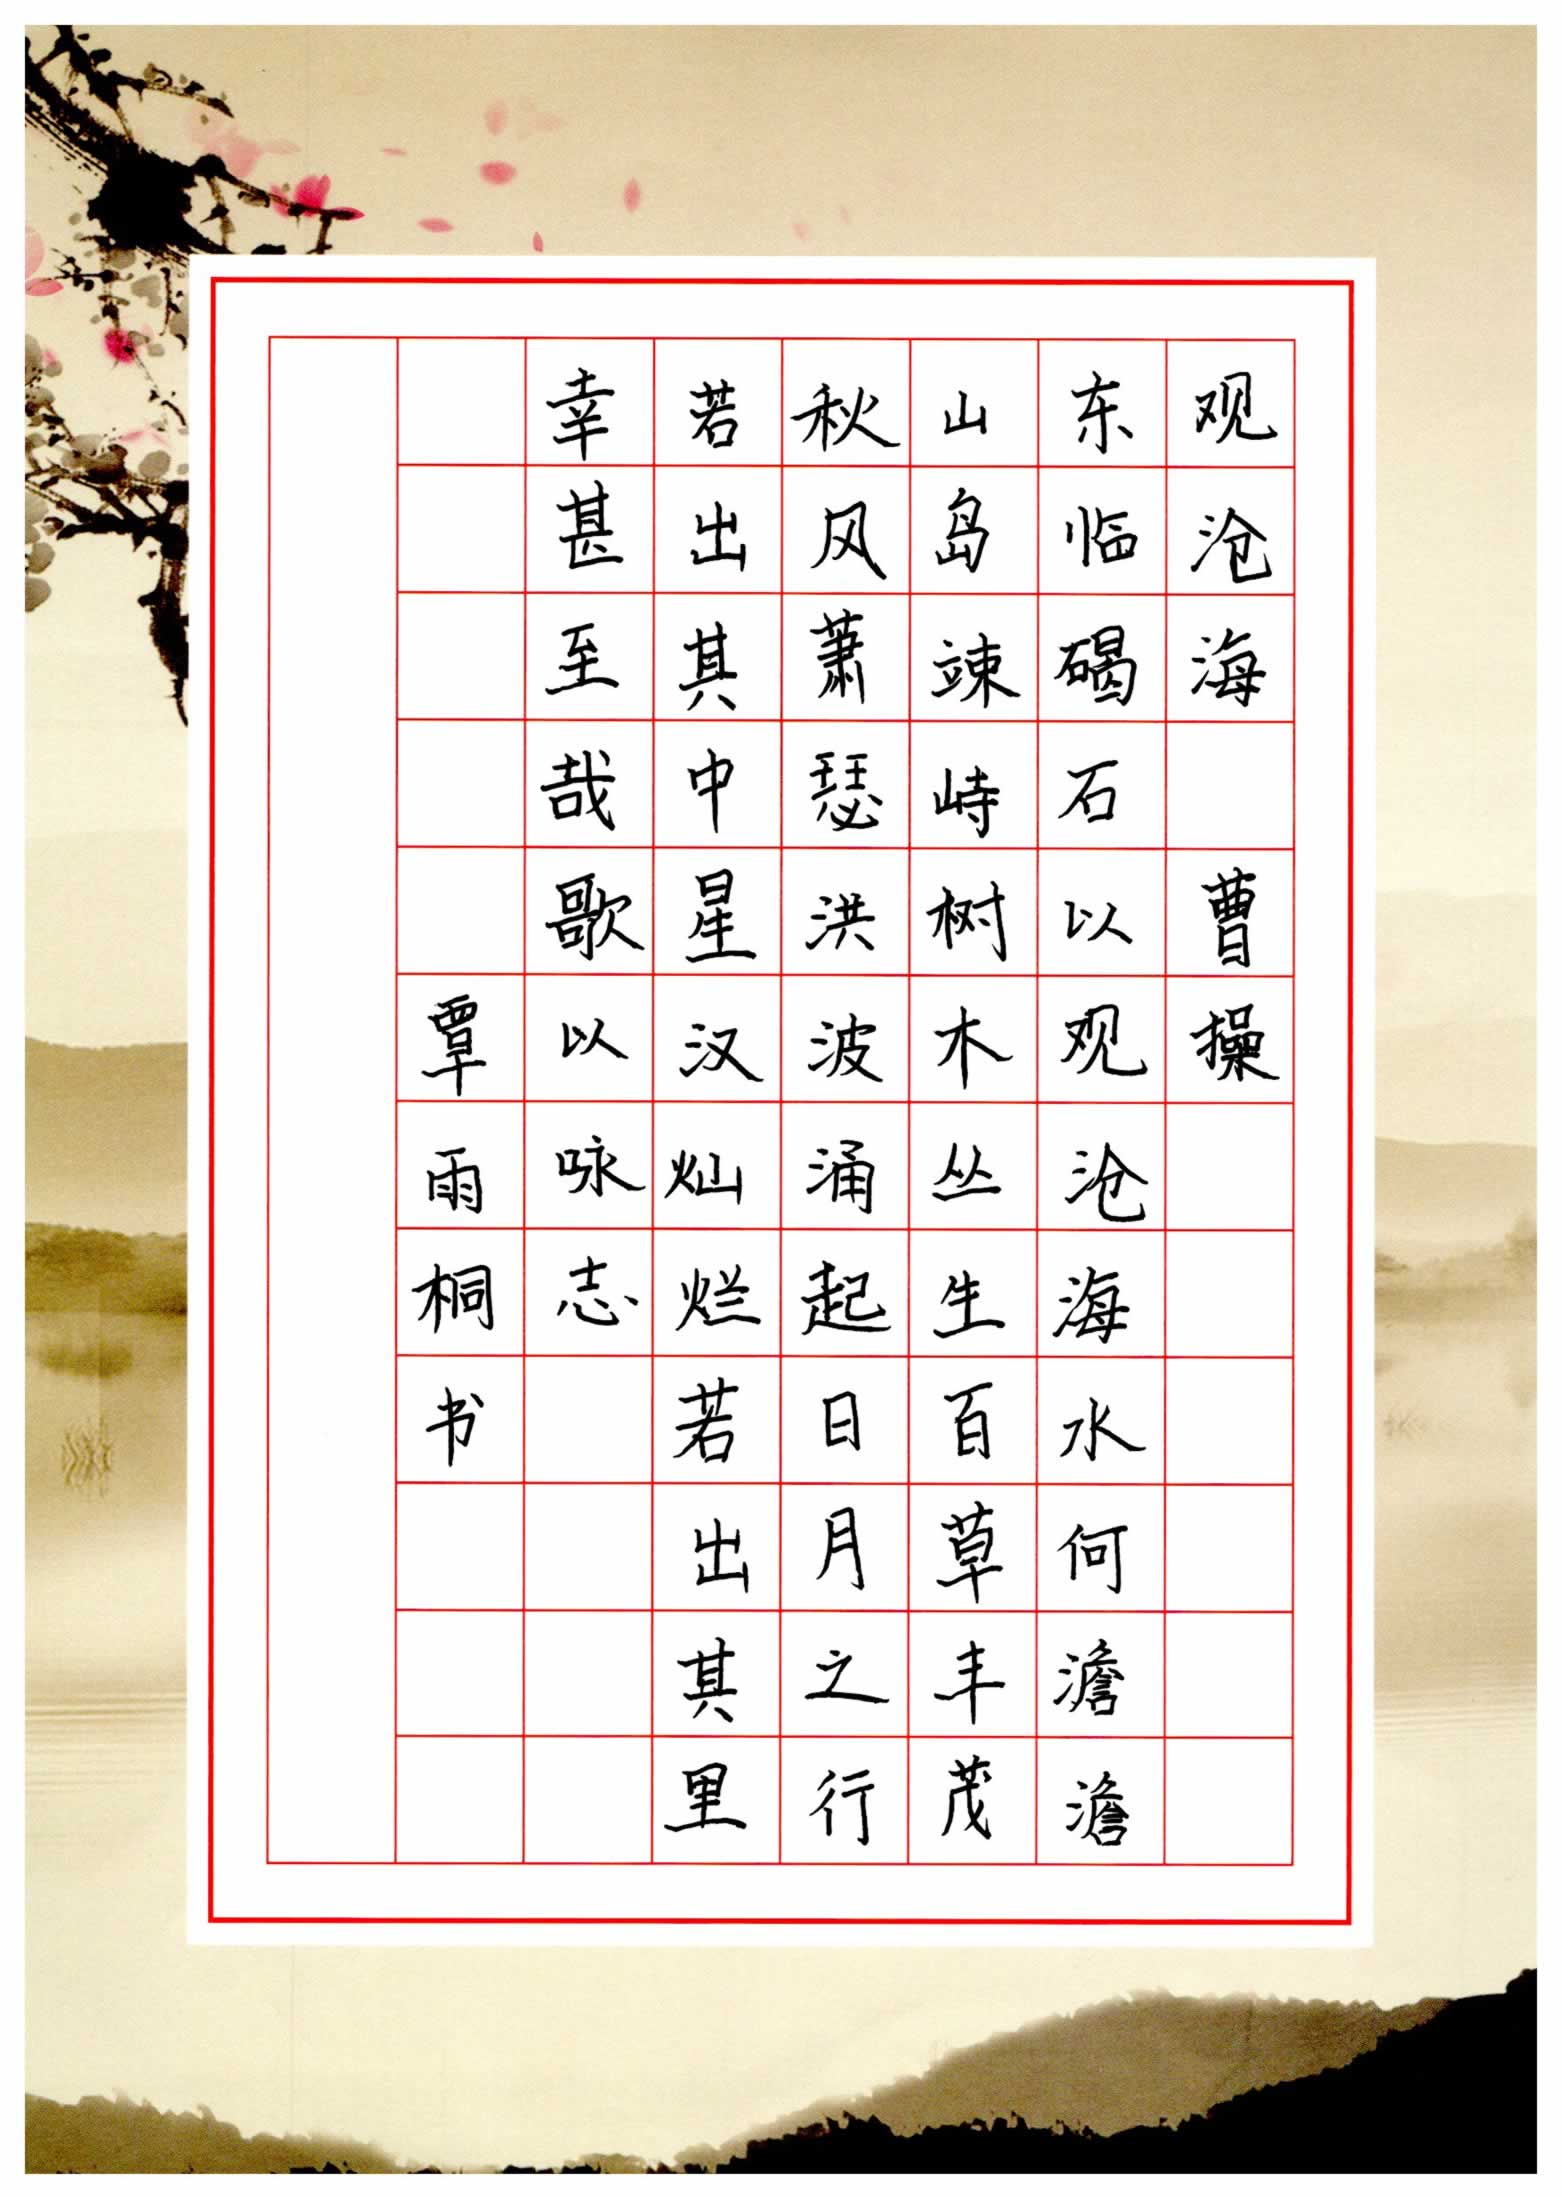 观沧海 曹操
东临碣石以观沧海水何澹澹
山岛竦峙树木丛生百草丰茂
秋风萧瑟洪波涌起日月之行
若出其中星汉灿烂若出其里
幸甚至哉歌以咏志
覃雨桐书